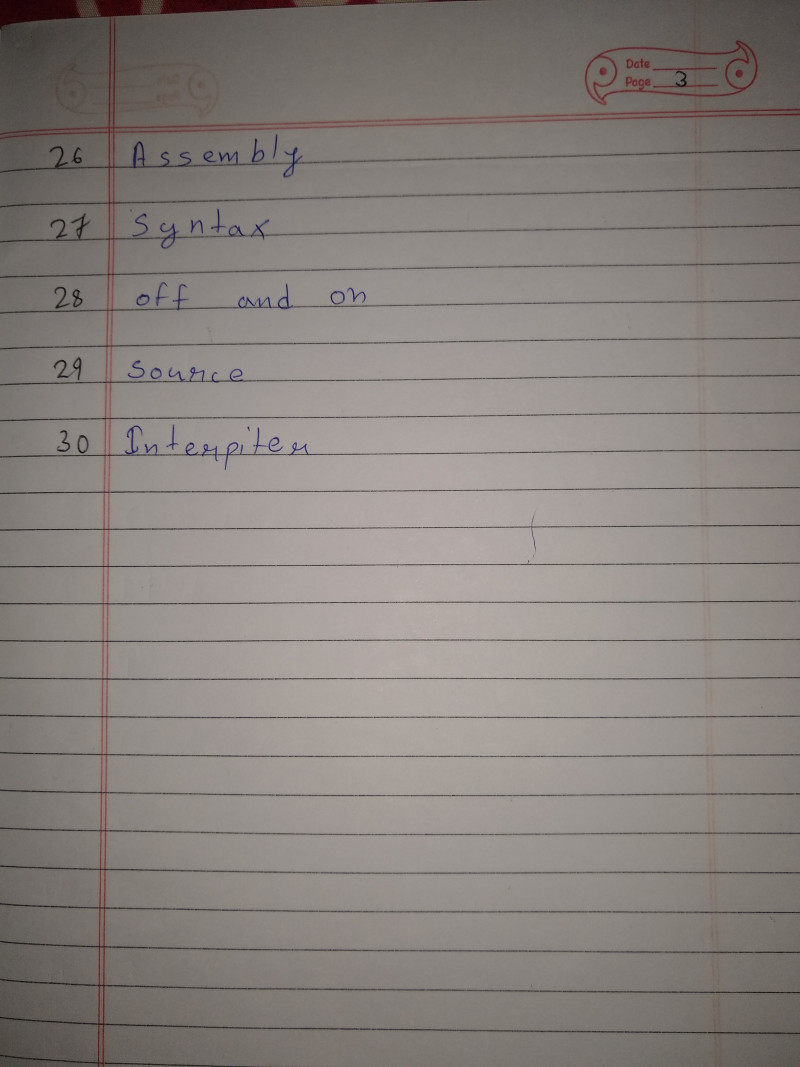 Date
Page 3
26 Assembly
27 Syntax
28 off and on
29 Source
30 Interpiter